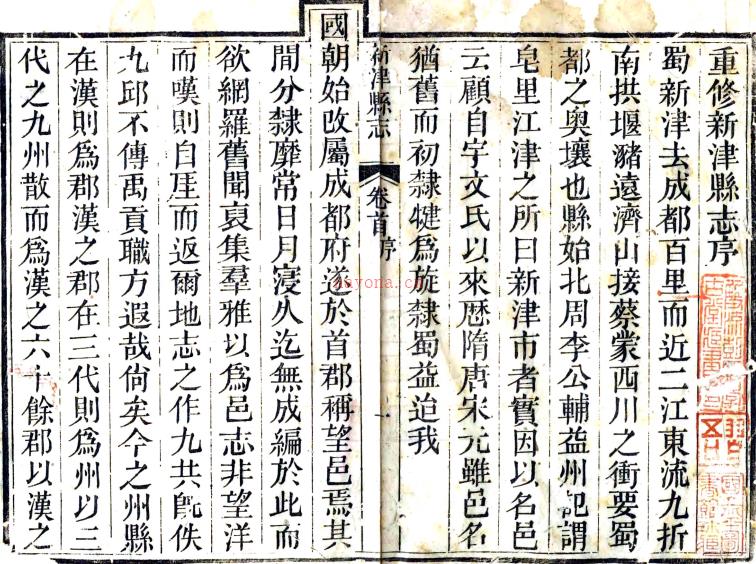 重修新津縣志序
蜀新津去成都百里而近二江東流九折
南拱堰瀦遠濟山接蔡蒙西川之衝要蜀
都之奥壤也縣始北周李公輔益州記謂
皂里江津之所曰新津市者實因以名邑
云顧自宇文氏以來歴隋唐宋元雖邑名
猶舊而初隸犍爲旋隸蜀益迨我
新津縣志
卷首
序
一
國朝始改屬成都府遂於首郡稱望邑焉其
間分隸靡常日月寖久迄無成編於此而
欲網羅舊聞裒集羣雅以爲邑志非望洋
而嘆則自厓而返爾地志之作九共旣佚
九邱不傳禹貢職方遐哉尙矣今之州縣
在漢則爲郡漢之郡在三代則爲州以三
代之九州散而爲漢之六十餘郡以漢之
nayona.cn